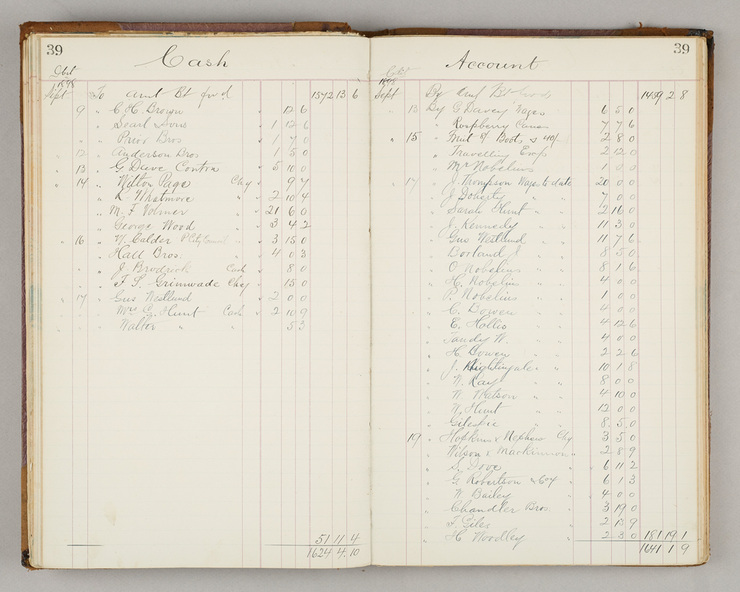 39
Cash
1898
Sept To Amt Bt fwd 1572 13 6
9 " C. H. Brown 12 6
" Searl & Sons 1 12 6
" Prior Bros 1 7 0
12 " Anderson Bros 1 5 0
13 " G Deeve Contra 5 10 0
14 " Wilton Page Chq 9 7
" K Whatmore " 2 10 4
" M. F. Volmer " 21 6 0
" George Wood " 3 4 2
16 " W. Calder " 3 15 0
" Hall Bros. " 4 0 3
" J. Brodrick Cash " 8 0
" F. S. Grimwade Chq " 15 0
17 " Gus Westlund " 2 0 0
" Mrs C. Hunt Cash " 2 10 9
" Walter " " 5 3
51 11 4
1624 4 10
39
Account
1898
Sept By Amt Bt fwd 1459 2 8
13 By G Deevey Wages 6 5 0
" Raspberry Canes 7 7 6
15 " Boots 2 8 0
" Travelling Exps 2 12 0
" Mrs Nobelius 1 0 0
17 " J. Thompson Wages to date 20 0 0
" J. Doherty " 7 0 0
" Sarah Hunt " 2 16 0
" J. Kennedy " 11 3 0
" Gus Westlund " 11 7 6
" Borland J. " 8 5 0
" O Nobelius " 8 1 6
" H. Nobelius " 4 0 0
" Nobelius " 1 0 0
" C. Bowen " 4 0 0
" E. Hollis " 4 12 6
" Tandy W. " 4 0 0
" H Bowen " 2 2 6
" J. Nightingale " 10 1 8
" W. Kay " 8 0 0
" W. Watson " 4 10 0
" W. Hunt " 12 0 0
" Gilespie " 8 5 0
19 " Hopkins & Nephew Chq 3 5 0
" Wilson & Mackinnon " 2 8 9
" S. Dove " 6 11 2
" G Robertson & Coy " 6 1 3
" W Bailey " 4 0 0
" Chandler Bros " 3 19 0
" F. Giles " 2 13 9
" H Woodley " 2 3 0 181 19 1
1641 1 9